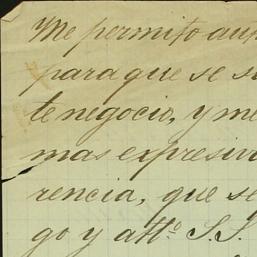 Me permito
para que se
te negocio, y me
mas expresiv
rencia, que se
go y atto. S.S.